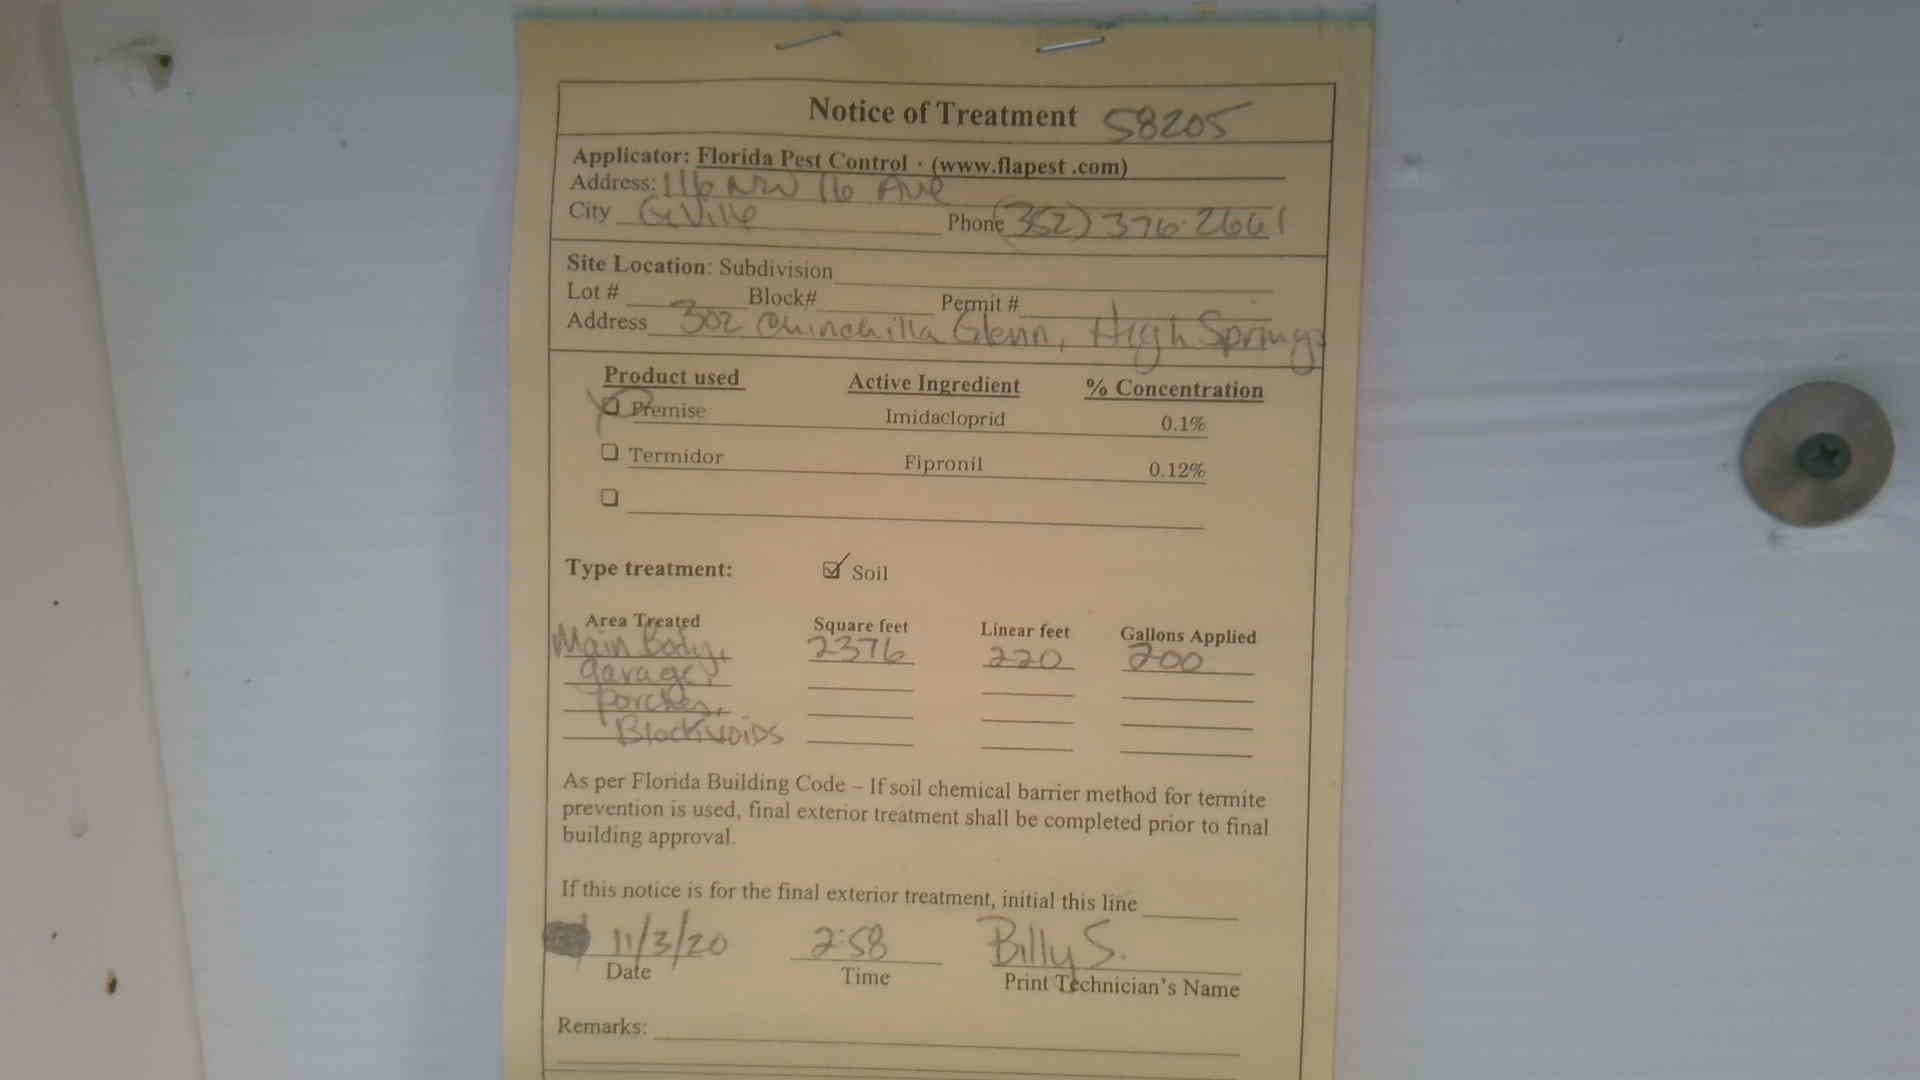 Notice of Treatment 58205
Applicator: Florida Pest Control · (www.flapest .com)
Address: 116 NW 16 Ave
City GVille Phone (352) 376-2661
Site Location: Subdivision
Lot # Block# Permit #
Address 302 Chinchilla Glenn, High Springs
Product used Active Ingredient % Concentration
Premise Imidacloprid 0.1%
Termidor Fipronil 0.12%
Type treatment: Soil
Area Treated Square feet Linear feet Gallons Applied
Main Body, 2376 220 200
garage,
Porches,
Blockvoids
As per Florida Building Code – If soil chemical barrier method for termite
prevention is used, final exterior treatment shall be completed prior to final
building approval.
If this notice is for the final exterior treatment, initial this line
11/3/20 2:58 Billy S.
Date Time Print Technician's Name
Remarks: